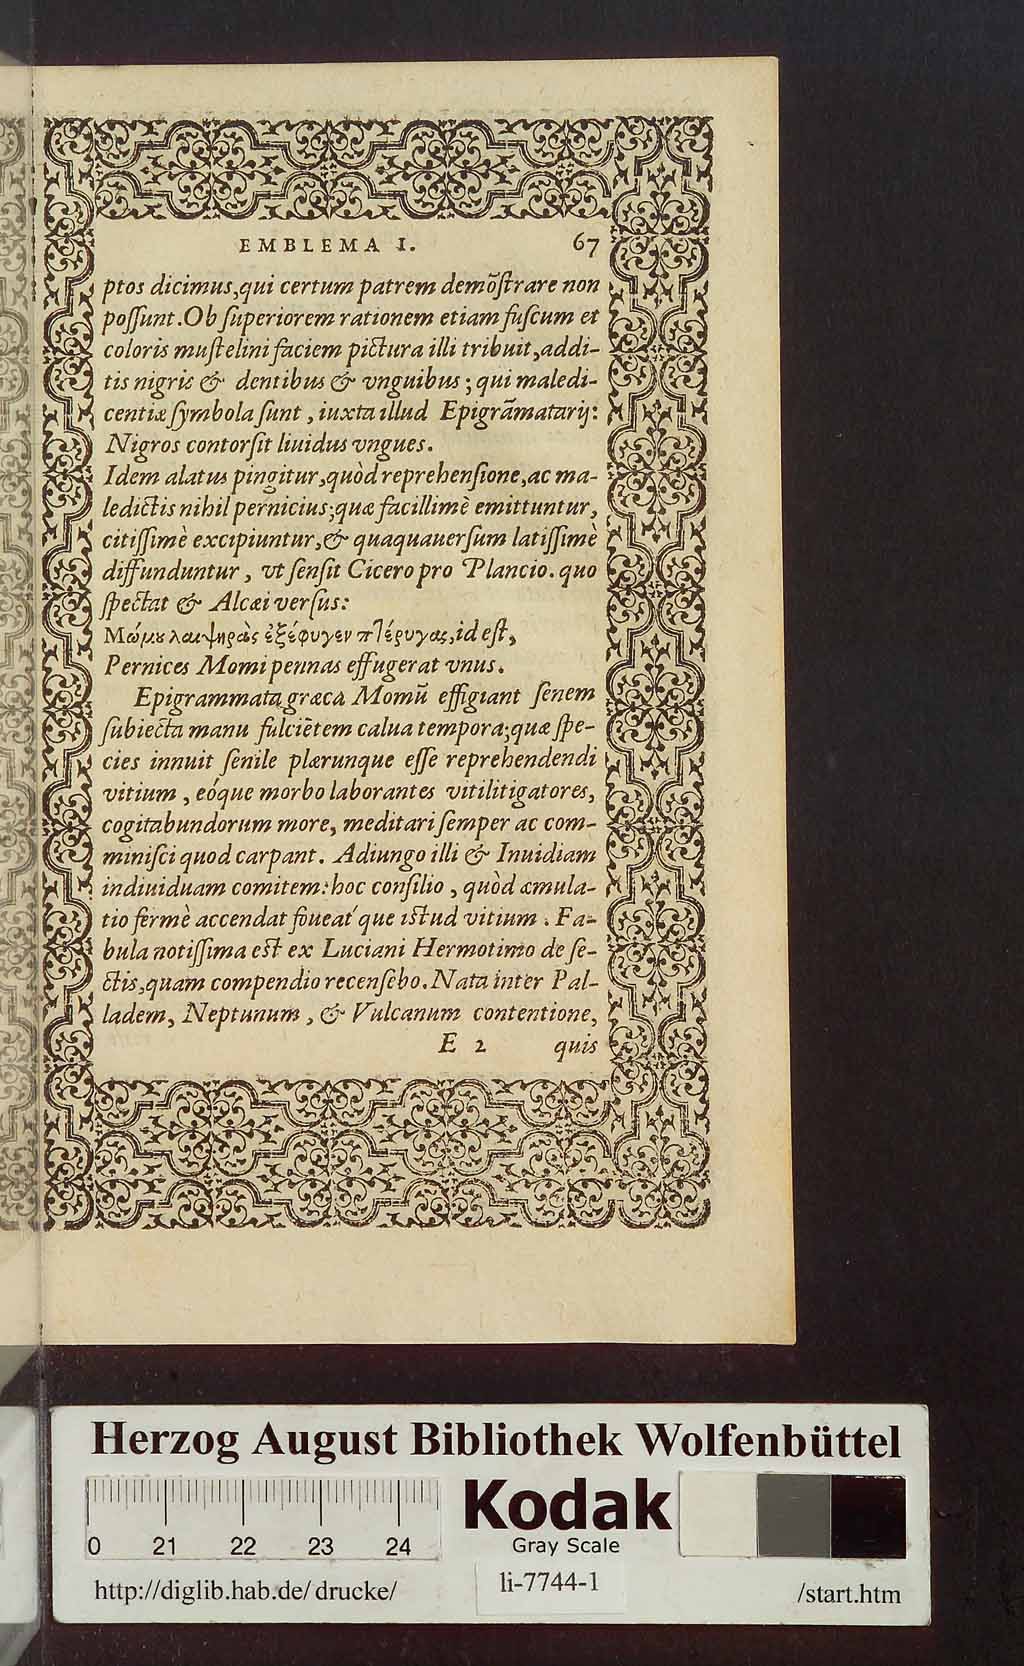 EMBLEMA I. 67
ptos dicimus,qui certum patrem demõſtrare non
poſſunt.Ob ſuperiorem rationem etiam fuſcum et
coloris muſtelini faciem pictura illi tribuit,addi-
tis nigris & dentibus & vnguibus; qui maledi-
centiæ ſymbola ſunt, iuxta illud Epigrãmatarij:
Nigros contorſit liuidus vngues.
Idem alatus pingitur,quòd reprehenſione,ac ma-
ledictis nihil pernicius;quæ facillimè emittuntur,
citiſſimè excipiuntur,& quaquauerſum latiſſimè
diffunduntur, vt ſenſit Cicero pro Plancio. quo
ſpectat & Alcæi verſus:
Μώμȣ λαιψηρὰς ἐξέφυγεν πτέρυγας,id eſt,
Pernices Momi pennas effugerat vnus.
Epigrammata græca Momũ effigiant ſenem
ſubiecta manu fulciẽtem calua tempora;quæ ſpe-
cies innuit ſenile plærunque eſſe reprehendendi
vitium, eóque morbo laborantes vitilitigatores,
cogitabundorum more, meditari ſemper ac com-
miniſci quod carpant. Adiungo illi & Inuidiam
indiuiduam comitem: hoc conſilio, quòd æmula-
tio fermè accendat foueat́que istud vitium. Fa-
bula notiſſima est ex Luciani Hermotimo de ſe-
ctis,quam compendio recenſebo.Nata inter Pal-
ladem, Neptunum, & Vulcanum contentione,
E 2 quis
Herzog August Bibliothek Wolfenbüttel
Kodak
Gray Scale
0 21 22 23 24
http://diglib.hab.de/drucke/ li-7744-1 /start.htm